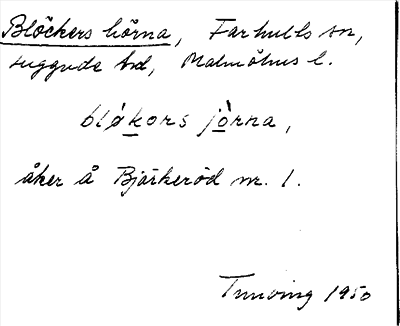 Blöckers hörna, Farhults sn,
Luggude hd, Malmöhus l.
blǿkors jǫ̀rna,
åker å Bjärkeröd nr. 1.
Tunving 1950